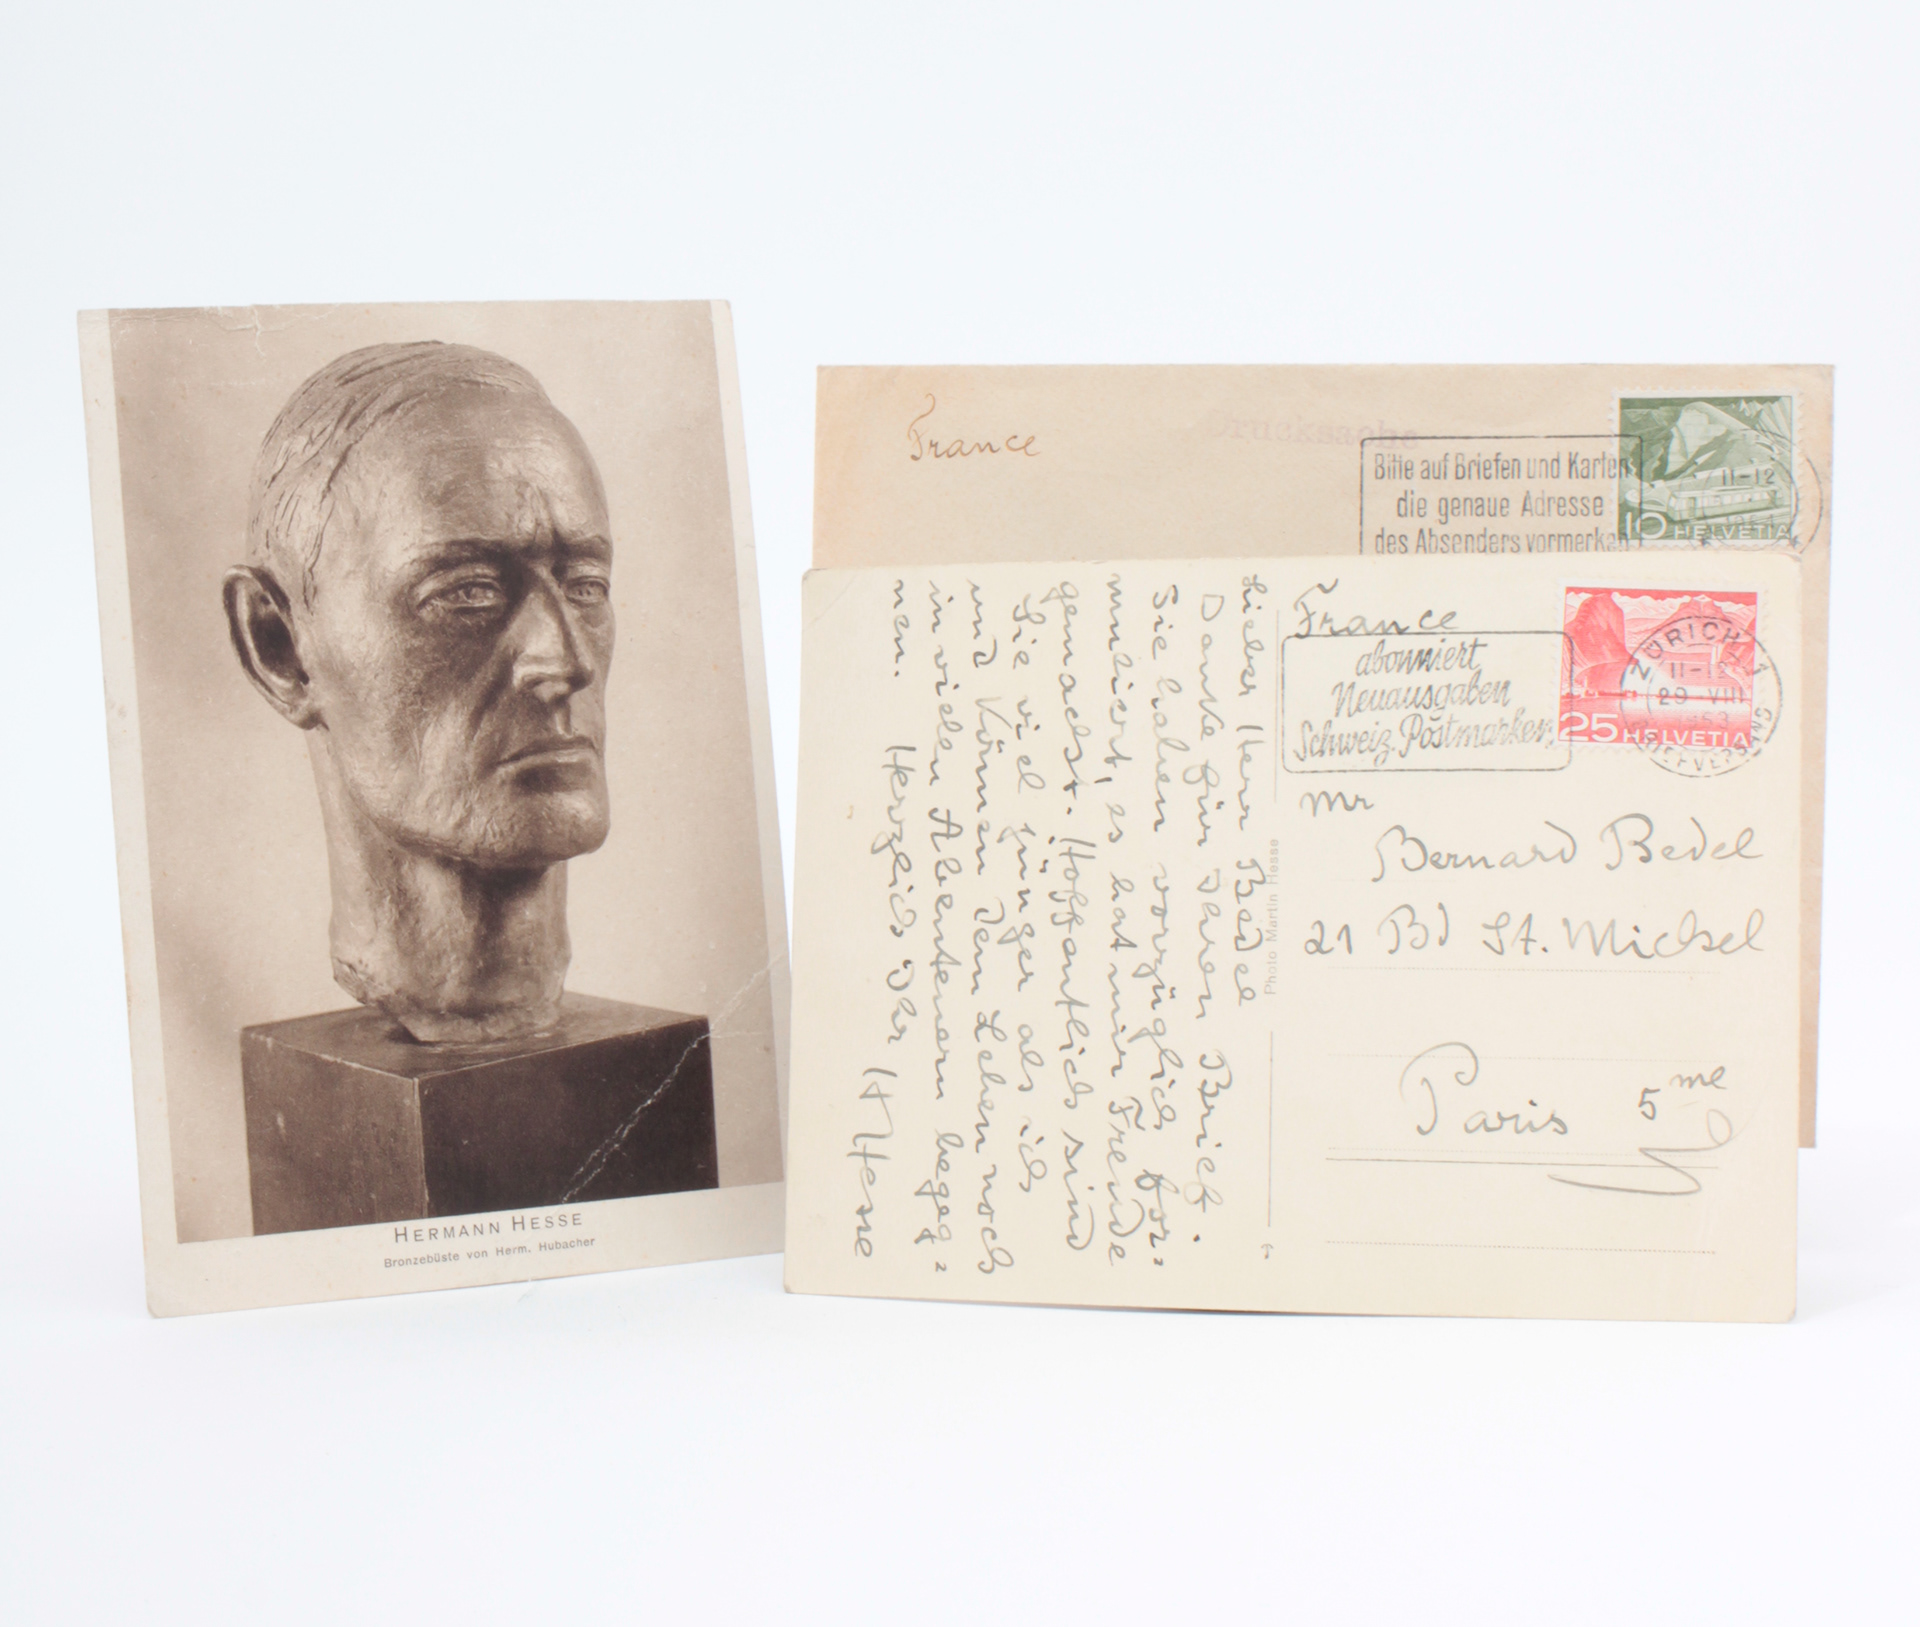 HERMANN HESSE
Bronzebüste von Herm. Hubacher
France
Drucksache
Bitte auf Briefen und Karten
die genaue Adresse
des Absenders vormerken
11-12
10 HELVETIA
Lieber Herr Bedel
Danke für Ihren Brief.
Sie haben vorzüglich for-
muliert, es hat mir Freude
gemacht. Hoffentlich sind
Sie viel jünger als ich
und können dem Leben noch
in vielen Abenteuern begeg-
nen.
Herzlich Ihr
H Hesse
Photo Martin Hesse
France
abonniert
Neuausgaben
Schweiz. Postmarken
ZÜRICH 1
11-12
29 VIII
1953
BRIEFVERSAND
25 HELVETIA
Mr
Bernard Bedel
21 Bd St. Michel
Paris 5me